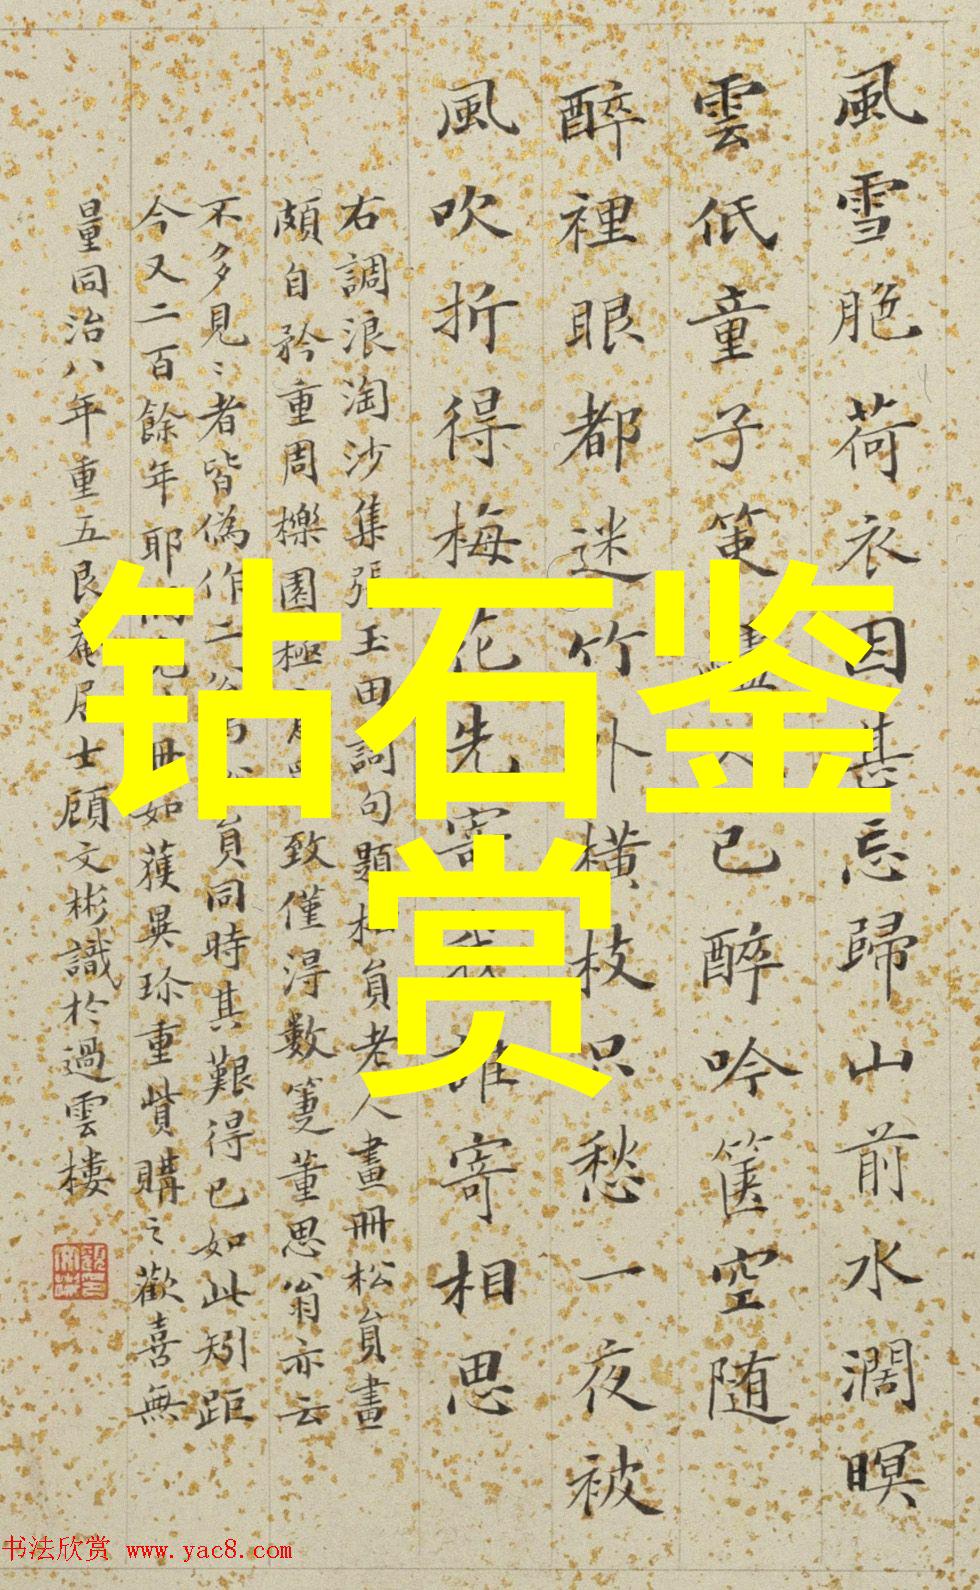 風雪脃荷衣因甚忘歸山前水濶暝
雲低童子策已醉吟篋空随
醉裡眼都迷竹外橫枝只愁一夜被
風吹折得梅花先寄誰寄相思
右調浪淘沙集張玉田詞句題松員老人畫冊松員畫
頗自矜重周櫟園極致僅得數筆董思翁亦云
不多見〻者皆偽作二員同時其艱得已如此矧距
今又二百餘年耶冊如獲異珍重貲購之歡喜無
量同治八年重五艮菴居士顧文彬識於過雲樓
钻石鉴
赏
书法欣赏 www.yac8.com